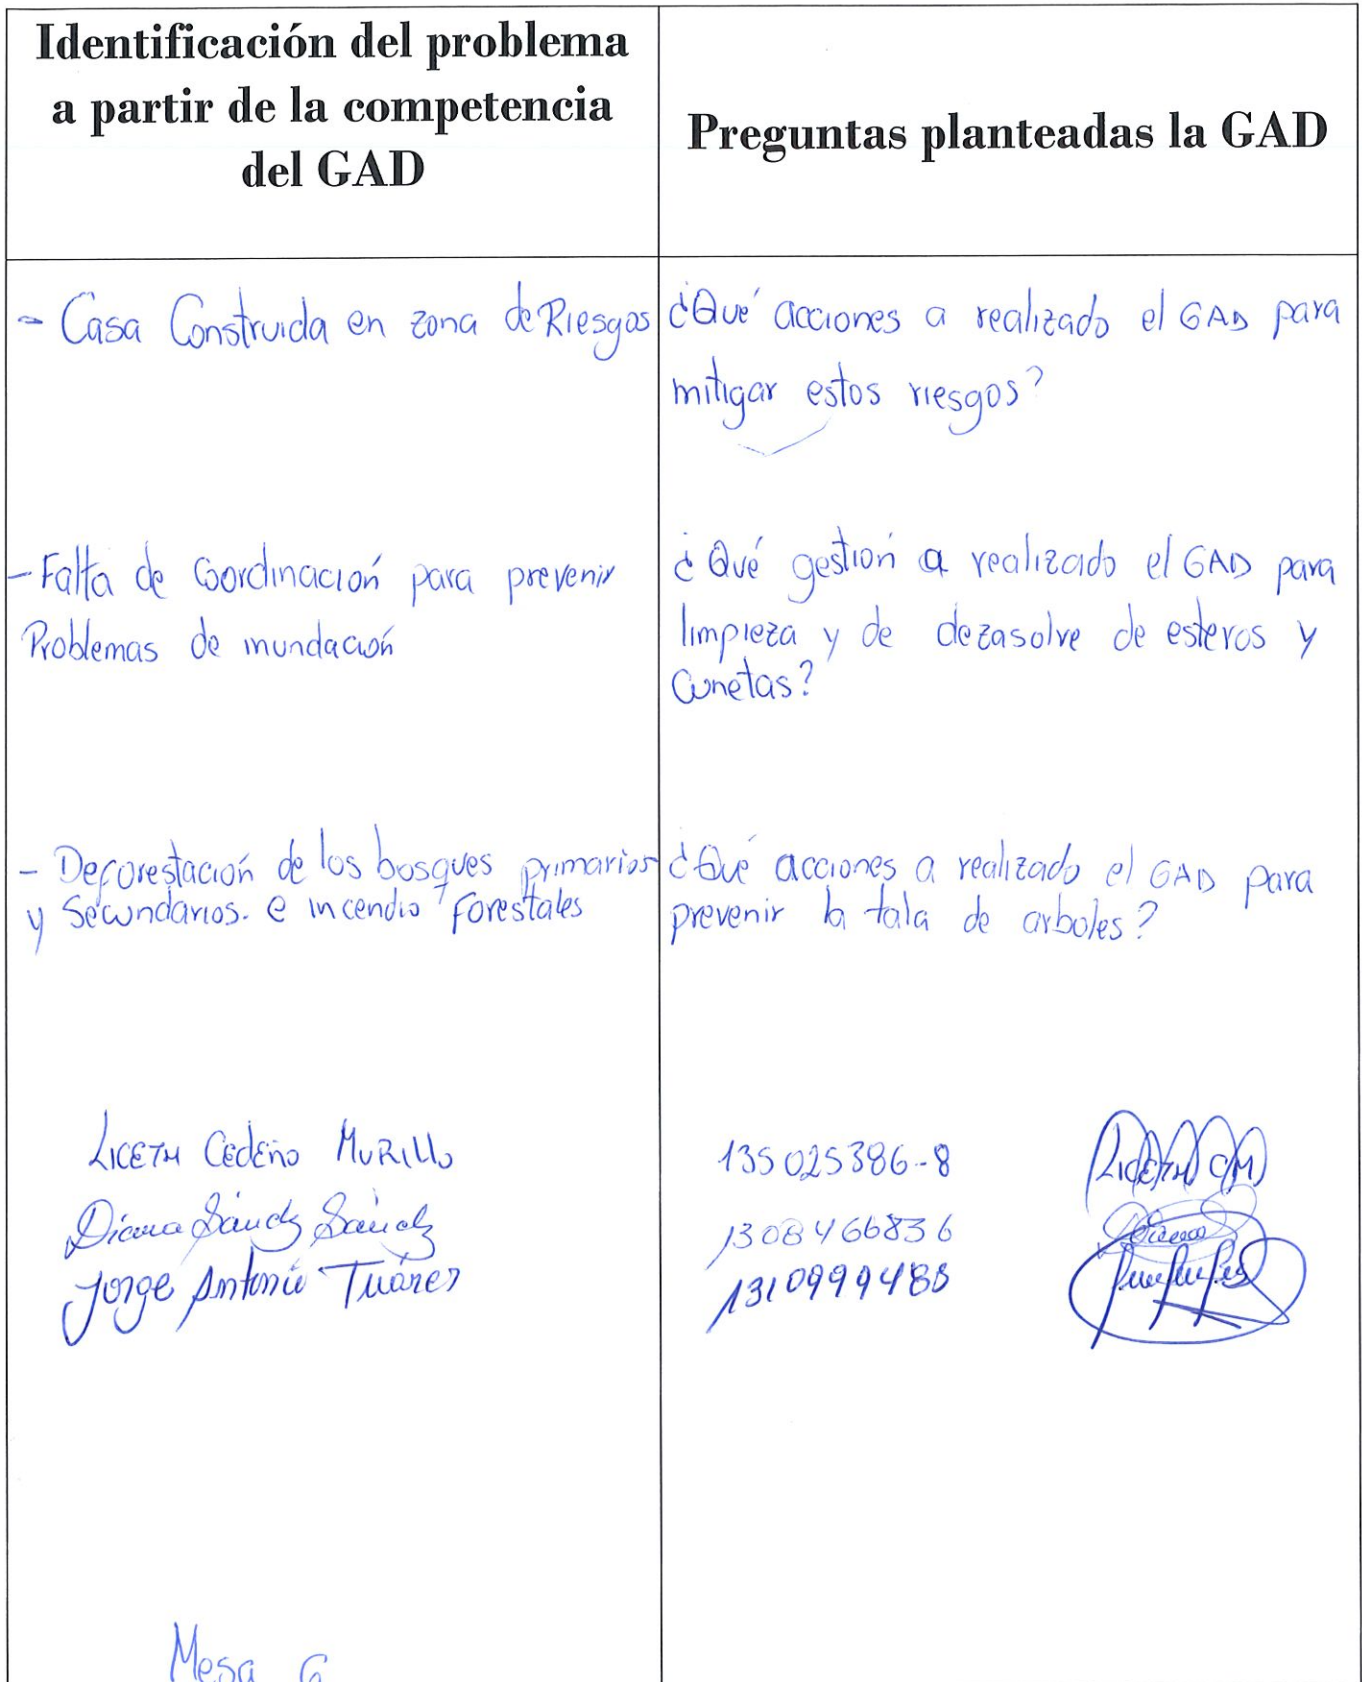 Identificación del problema
a partir de la competencia
del GAD
Preguntas planteadas la GAD
- Casa Construida en zona de Riesgos
¿Qué acciones a realizado el GAD para
mitigar estos riesgos?
- Falta de Coordinación para prevenir
Problemas de inundación
¿Qué gestión a realizado el GAD para
limpieza y de dezasolve de esteros y
Cunetas?
- Deforestación de los bosques primarios
y Secundarios. e incendio forestales
¿Qué acciones a realizado el GAD para
prevenir la tala de arboles?
Liceth Cedeño Murillo 135025386-8
Diana Sánchz Sánchz 1308466836
Jorge Antonio Tuárez 1310999488
Mesa 6